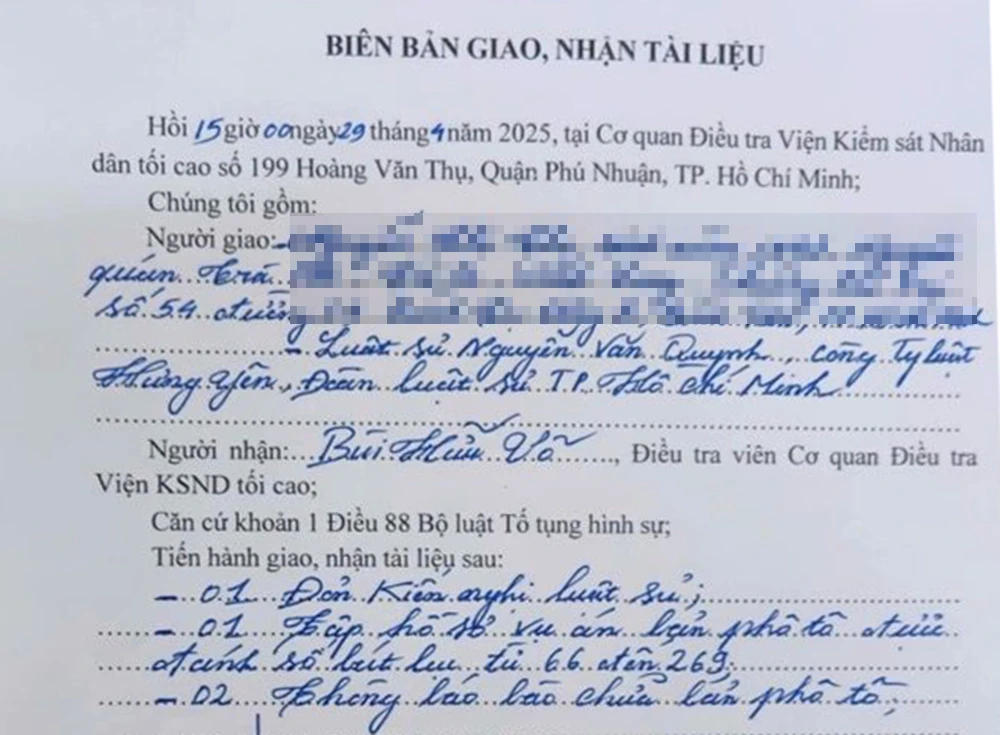 BIÊN BẢN GIAO, NHẬN TÀI LIỆU
Hồi 15 giờ 00 ngày 29 tháng 4 năm 2025, tại Cơ quan Điều tra Viện Kiểm sát Nhân
dân tối cao số 199 Hoàng Văn Thụ, Quận Phú Nhuận, TP. Hồ Chí Minh;
Chúng tôi gồm:
Người giao:
quán
số 54 đường
- Luật sư Nguyễn Văn Quynh, Công Ty luật
Hưng Yên, Đoàn luật sư TP. Hồ Chí Minh
Người nhận: Bùi Hữu Võ, Điều tra viên Cơ quan Điều tra
Viện KSND tối cao;
Căn cứ khoản 1 Điều 88 Bộ luật Tố tụng hình sự;
Tiến hành giao, nhận tài liệu sau:
- 01 Đơn Kiến nghị luật sư;
- 01 Tập hồ sơ vụ án bản phô tô được
đánh số bút lục từ 66 đến 269;
- 02 Thông báo bào chữa bản phô tô;